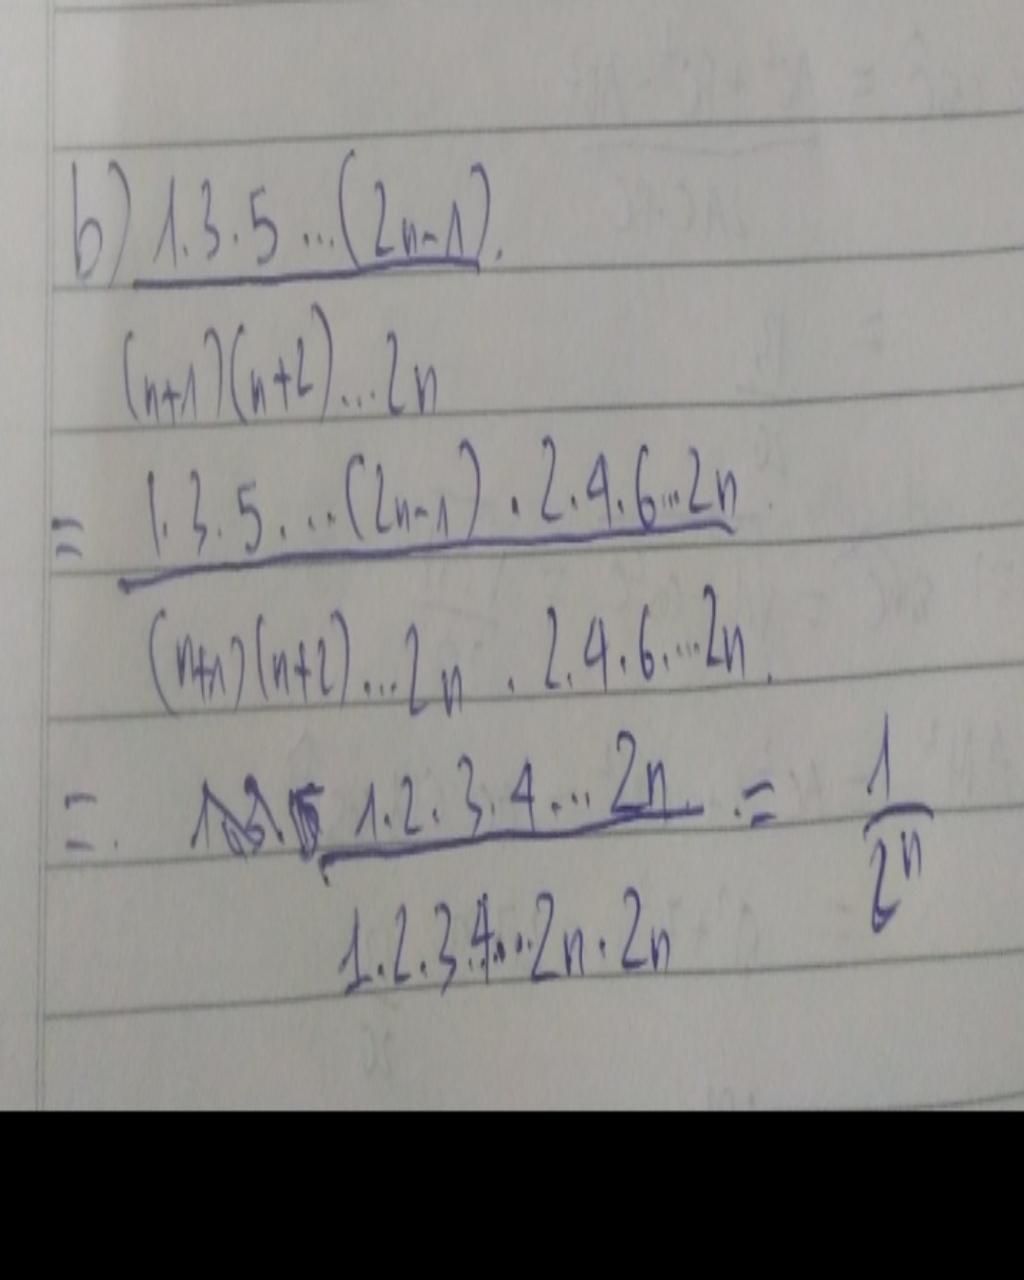 b) 1.3.5...(2n-1).
(n+1)(n+2)...2n
= 1.3.5...(2n-1).2.4.6...2n
(n+1)(n+2)...2n.2.4.6...2n.
=. 1.2.3.4...2n .= 1
1.2.3.4...2n.2n 2ⁿ